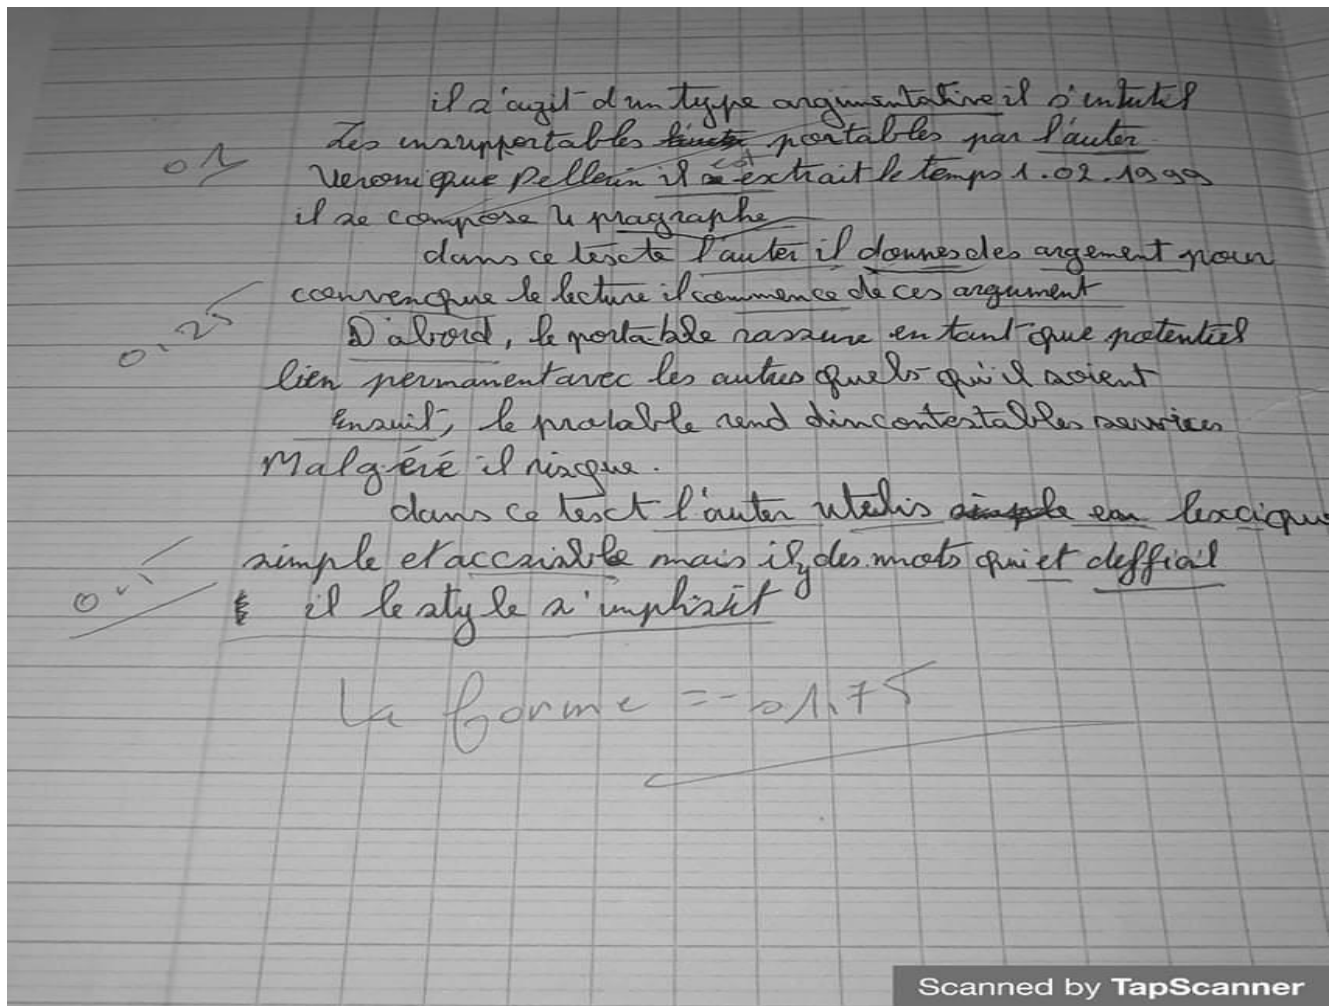 il s'agit d'un type argumentative il s'intutel
Les insupportables portables par l'auter
Veronique Pellerin il est extrait le temps 1.02.1999
01
il se compose 4 pragraphe
dans ce texte l'auter il donnes des argement pour
convencque le lecture il commence de ces argument
0,25
D'abord, le portable rassure en tant que potentiel
lien permanent avec les autres quels qu'il soient
Ensuit, le protable rend dincontestables services
Malgéré il risque.
dans ce text l'auter utelis en lexcique
simple et accssible mais il y des mots qui et deffiail
il le style s'implisit
La forme = 01.75
Scanned by TapScanner